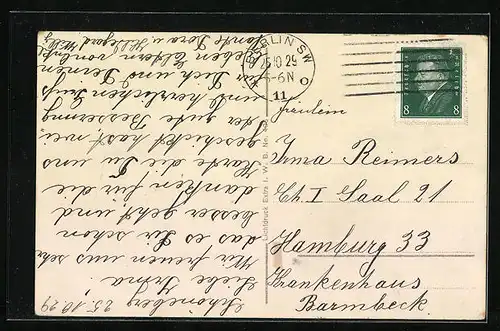 Schöneberg 25.10.29
Liebe Irma!
Wir freuen uns sehr
das es Dir schon
besser geht und
danken für die
Karte die Du uns
geschickt hast wei-
ter gute Besserung
und herzlichen Gruß
für Dich und Deinen
lieben Eltern von
Tante Dora u Hildegard Willy
BERLIN SW
25.10.29
5-6N
11
DEUTSCHES REICH
8 8
Fräulein
Irma Reimers
Ch. I Saal 21
Hamburg 33
Krankenhaus
Barmbeck.